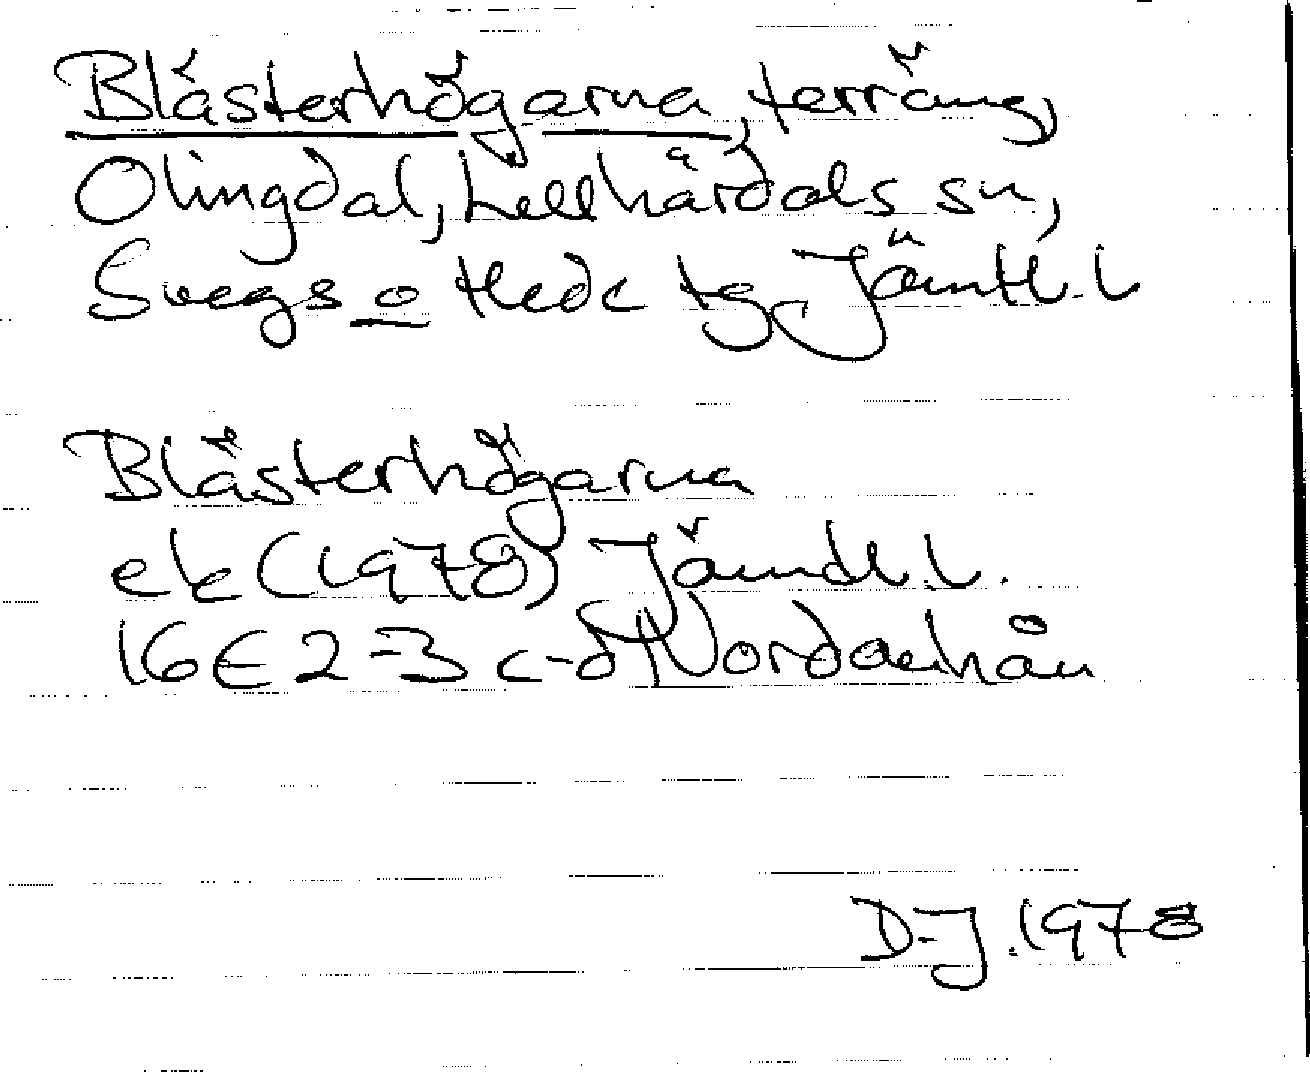 Blästerhögarna, terräng,
Olingdal, Lillhärdals sn,
Svegs o Hede tg, Jämtl. l
Blästerhögarna
ek (1978) Jämtl. l.
16E 2-3 c-d Nordanhån
D-J. 1978